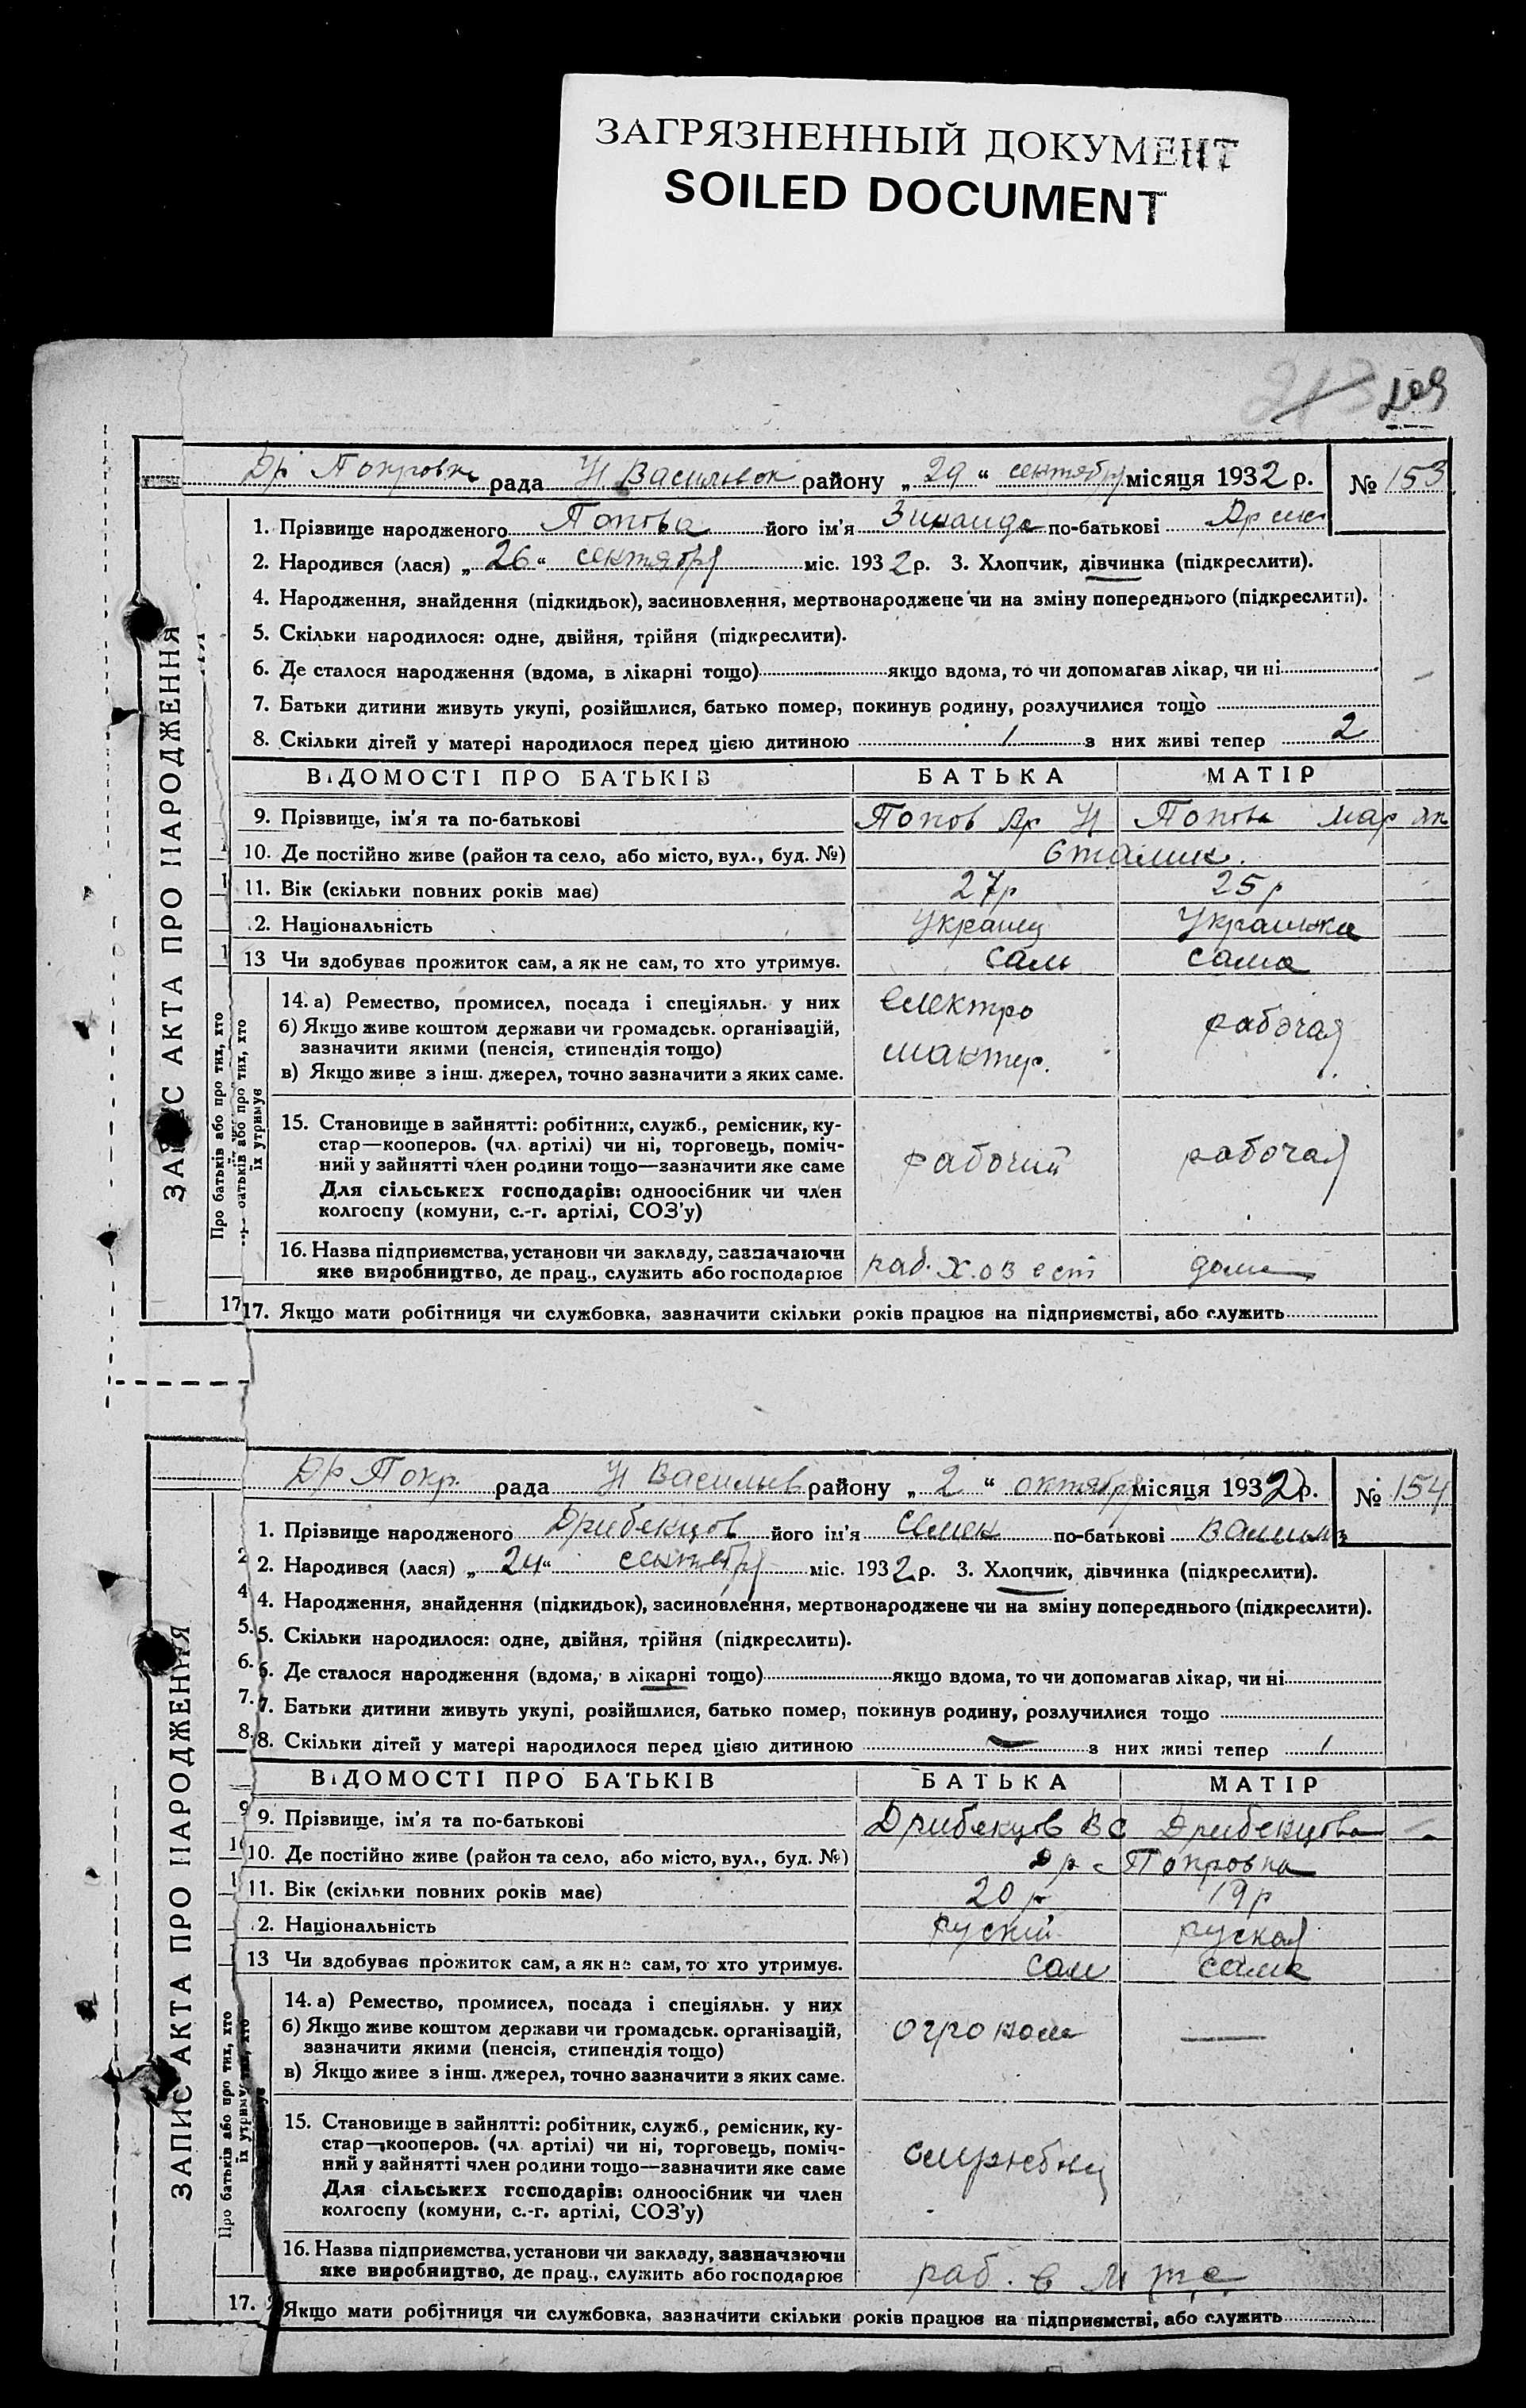 ЗАГРЯЗНЕННЫЙ ДОКУМЕНТ
SOILED DOCUMENT
213 209
Др Покровк рада Н Васильевск району „ 29 “ сентября місяця 1932 р. № 153
1. Прізвище народженого Попова його ім'я Зинаида по-батькові
2. Народився (лася) „ 26 “ сентября міс. 1932 р. 3. Хлопчик, дівчинка (підкреслити).
4. Народження, знайдення (підкидьок), засиновлення, мертвонароджене чи на зміну попереднього (підкреслити).
5. Скільки народилося: одне, двійня, трійня (підкреслити).
6. Де сталося народження (вдома, в лікарні тощо) якщо вдома, то чи допомагав лікар, чи ні
7. Батьки дитини живуть укупі, розійшлися, батько помер, покинув родину, розлучилися тощо
8. Скільки дітей у матері народилося перед цією дитиною 1 з них живі тепер 2
ВІДОМОСТІ ПРО БАТЬКІВ БАТЬКА МАТІР
9. Прізвище, ім'я та по-батькові Попов Ар Н Попова Мар Як
10. Де постійно живе (район та село, або місто, вул., буд. №)
11. Вік (скільки повних років має) 27р 25р
2. Національність Украинц Украинка
13 Чи здобуває прожиток сам, а як не сам, то хто утримує. сам сама
14. а) Ремество, промисел, посада і спеціяльн. у них електро
б) Якщо живе коштом держави чи громадськ. організацій, рабочая
зазначити якими (пенсія, стипендія тощо)
в) Якщо живе з інш. джерел, точно зазначити з яких саме.
15. Становище в зайнятті: робітник, служб., ремісник, ку-
стар—кооперов. (чл. артілі) чи ні, торговець, поміч-
ний у зайнятті член родини тощо—зазначити яке саме рабочий рабочая
Для сільських господарів: одноосібник чи член
колгоспу (комуни, с.-г. артілі, СОЗ'у)
16. Назва підприємства, установи чи закладу, зазначаючи
яке виробництво, де прац., служить або господарює раб. дома
17. Якщо мати робітниця чи службовка, зазначити скільки років працює на підприємстві, або служить
ЗАПИС АКТА ПРО НАРОДЖЕННЯ
Про батьків або про тих, хто
їх утримує
Др Покр. рада Н Васильев району „ 2 “ октября місяця 1932 р. № 154
1. Прізвище народженого Дрибекцов його ім'я Семен по-батькові
2. Народився (лася) „ 24 “ сентября міс. 1932 р. 3. Хлопчик, дівчинка (підкреслити).
4. Народження, знайдення (підкидьок), засиновлення, мертвонароджене чи на зміну попереднього (підкреслити).
5. Скільки народилося: одне, двійня, трійня (підкреслити).
6. Де сталося народження (вдома, в лікарні тощо) якщо вдома, то чи допомагав лікар, чи ні
7. Батьки дитини живуть укупі, розійшлися, батько помер, покинув родину, розлучилися тощо
8. Скільки дітей у матері народилося перед цією дитиною — з них живі тепер 1
ВІДОМОСТІ ПРО БАТЬКІВ БАТЬКА МАТІР
9. Прізвище, ім'я та по-батькові Дрибекцов ВС Дрибекцова
10. Де постійно живе (район та село, або місто, вул., буд. №) Др - Покровка
11. Вік (скільки повних років має) 20р 19р
2. Національність руский руская
13 Чи здобуває прожиток сам, а як не сам, то хто утримує. сам сама
14. а) Ремество, промисел, посада і спеціяльн. у них
б) Якщо живе коштом держави чи громадськ. організацій, огроном —
зазначити якими (пенсія, стипендія тощо)
в) Якщо живе з інш. джерел, точно зазначити з яких саме.
15. Становище в зайнятті: робітник, служб., ремісник, ку-
стар—кооперов. (чл. артілі) чи ні, торговець, поміч-
ний у зайнятті член родини тощо—зазначити яке саме
Для сільських господарів: одноосібник чи член
колгоспу (комуни, с.-г. артілі, СОЗ'у)
16. Назва підприємства, установи чи закладу, зазначаючи
яке виробництво, де прац., служить або господарює раб. в М т с
17. Якщо мати робітниця чи службовка, зазначити скільки років працює на підприємстві, або служить
ЗАПИС АКТА ПРО НАРОДЖЕННЯ
Про батьків або про тих, хто
їх утримує